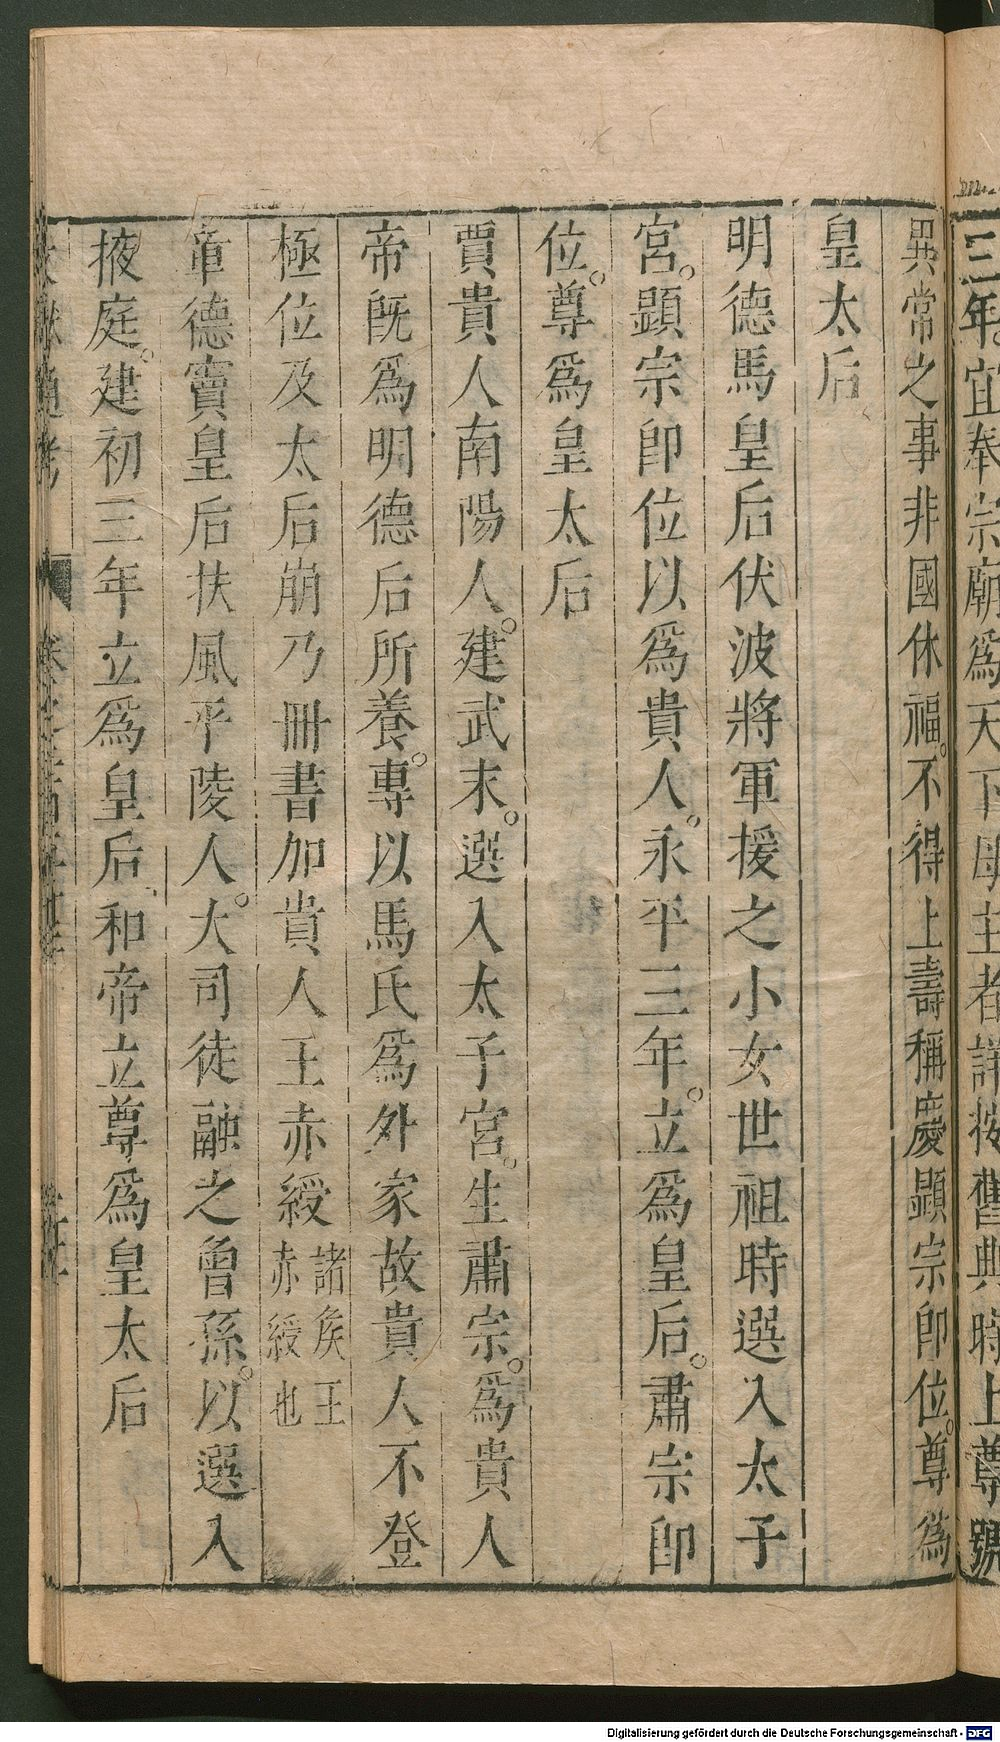 三年宜奉宗廟爲天下母主者詳按舊典時上尊號
異常之事非國休福不得上壽稱慶顯宗卽位尊爲
皇太后
明德馬皇后伏波將軍援之小女世祖時選入太子
宮顯宗卽位以爲貴人永平三年立爲皇后肅宗卽
位尊爲皇太后
賈貴人南陽人建武末選入太子宮生肅宗爲貴人
帝旣爲明德后所養專以馬氏爲外家故貴人不登
極位及太后崩乃冊書加貴人王赤綬諸矦王赤綬也
章德竇皇后扶風平陵人大司徒融之曾孫以選入
掖庭建初三年立爲皇后和帝立尊爲皇太后
文獻通考
Digitalisierung gefördert durch die Deutsche Forschungsgemeinschaft - DFG